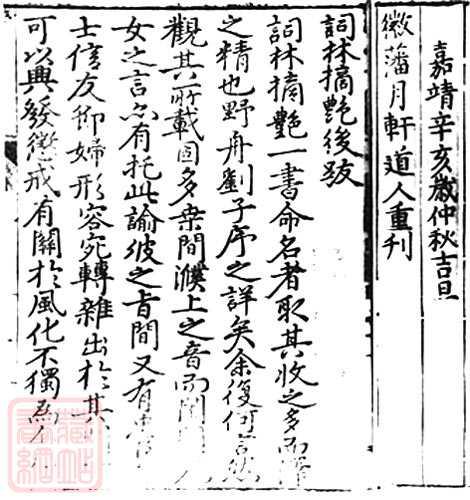 嘉靖辛亥歲仲秋吉旦
徽藩月軒道人重刊
詞林摘艷後跋
詞林摘艷一書命名者取其收之多而擇
之精也野舟劉子序之詳矣余復何言然
觀其所載固多桒間濮上之音而閨
女之言亦有托此諭彼之旨間又有忠
士信友節婦形容宛轉雜出於其
可以興發懲戒有關於風化不獨為